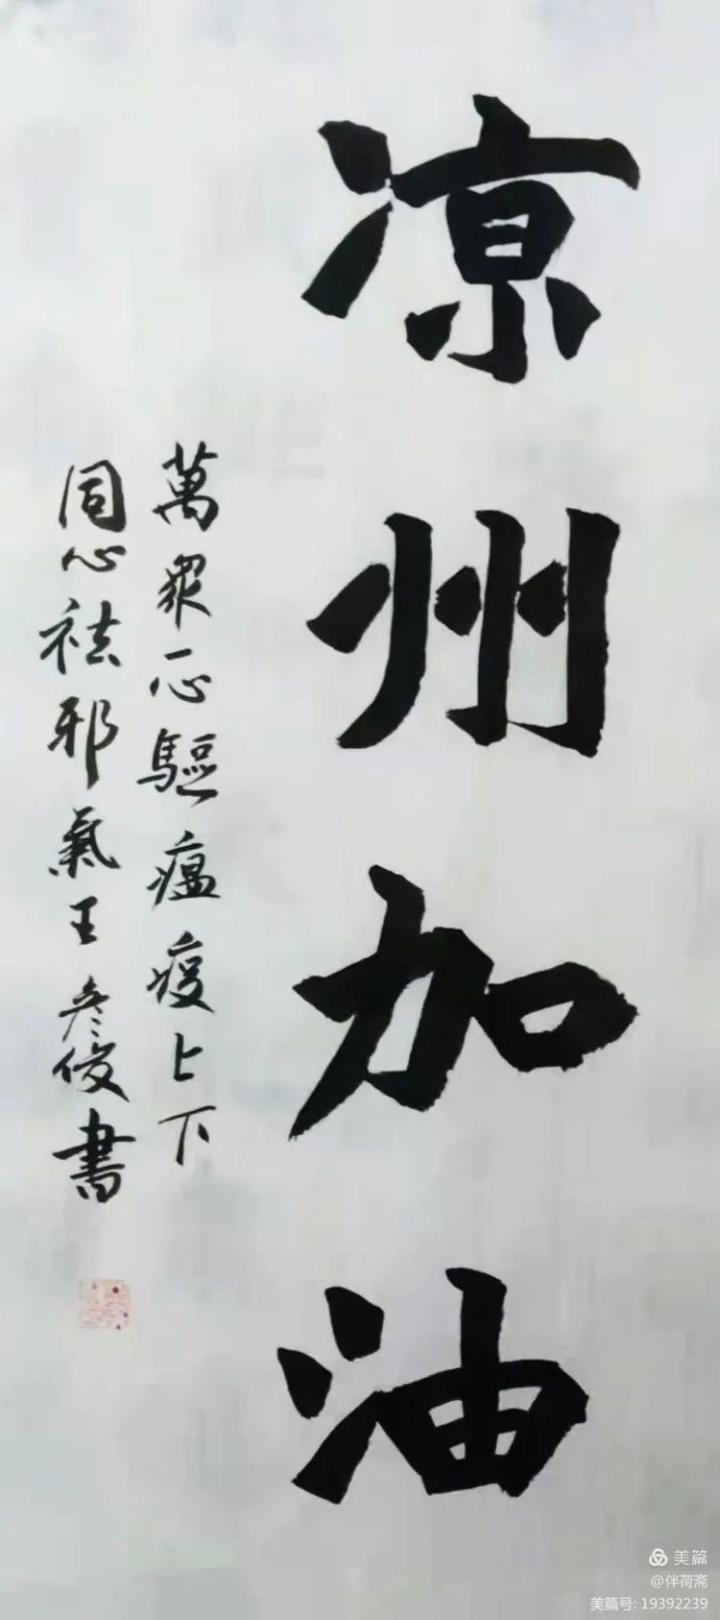 凉州加油
萬眾一心驅瘟疫上下
同心祛邪氣王彦俊書
美篇
@伴荷斋
美篇号: 19392239